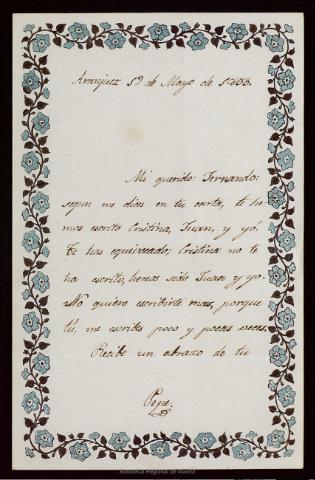 Aranjuez 19 de Mayo de 1883.
Mi querido: Fernando:
segun me dices en tu carta, te he
mos escrito Cristina, Juan, y yó.
Te has equivocado; Cristina no te
ha escrito, hemos sido Juan y yo.
No quiero escribirte mas, porque
tú, me escribes poco y pocas veces.
Recibe un abrazo de tu
Pepe.
Biblioteca Regional de Madrid